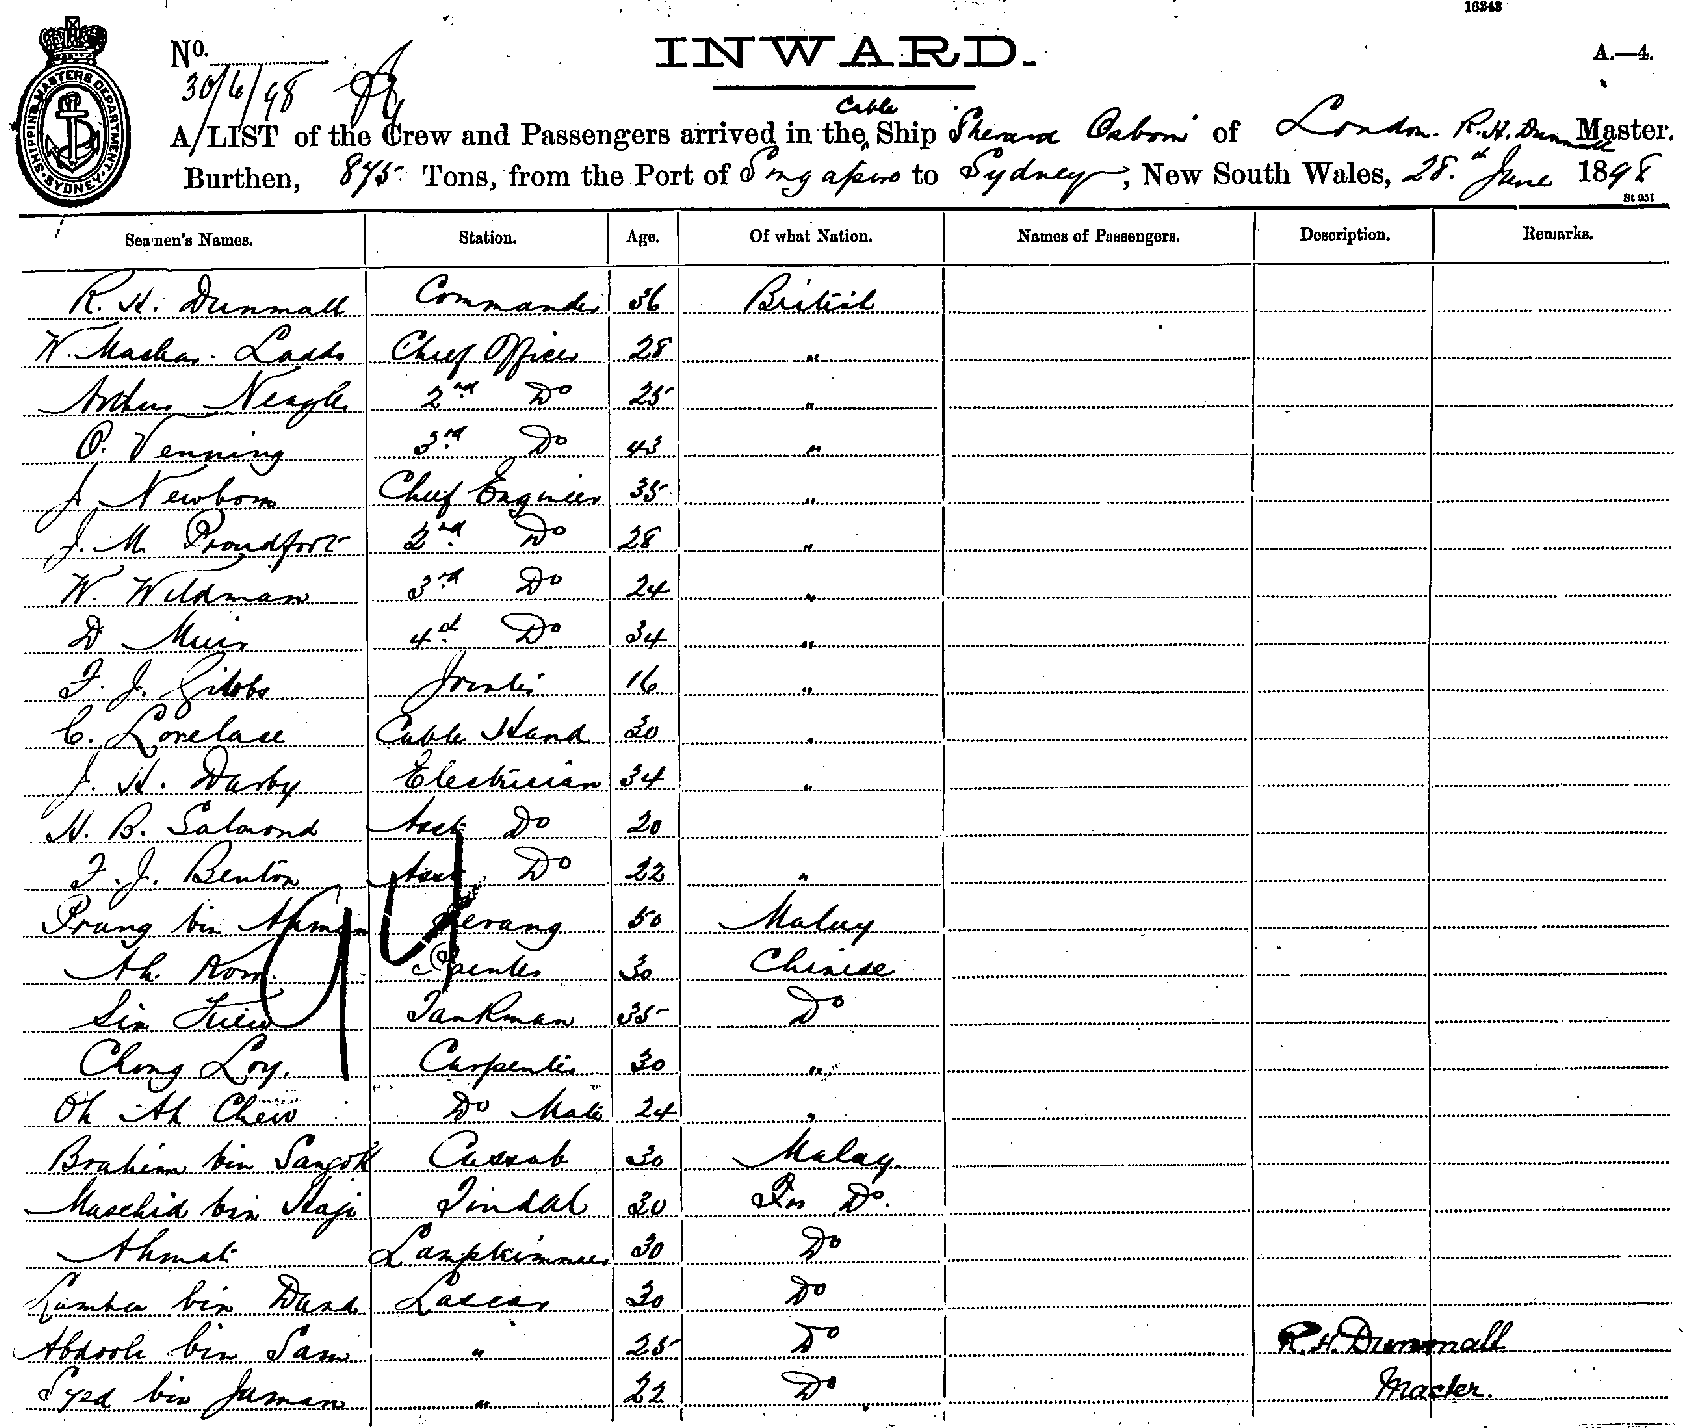 16343
No. INWARD. A.—4.
30/6/98
SHIPPING MASTERS DEPARTMENT SYDNEY
Cable
A LIST of the Crew and Passengers arrived in the Ship Sherard Osborn of London. R. H. Dunmall Master.
Burthen, 875 Tons, from the Port of Singapore to Sydney, New South Wales, 28th June 1898
St 951
Seamen's Names. Station. Age. Of what Nation. Names of Passengers. Description. Remarks.
R. H. Dunmall Commander 36 British
W. Ladds Chief Officer 28 "
Arthur Neagle 2nd Do 25 "
O. Venning 3rd Do 43 "
J. Newbom Chief Engineer 35 "
J. M. Proudfoot 2nd Do 28 "
W. Wildman 3rd Do 24 "
D Muir 4th Do 34 "
F. J. Gibbs Jointer 16 "
C. Lovelace Cable Hand 30 "
J. H. Darby Electrician 34 "
H. B. Salmond Asst Do 20
F. J. Benton Asst Do 22 "
Prang bin Ahman Serang 50 Malay
Ah Kom. 30 Chinese
Sin Tankman 35 Do
Chong Loy. Carpenter 30 "
Oh Ah Chew Do Mate 24 "
Brahim bin Cassab 30 Malay
Maschid bin Haji Tindal 30 Do.
Ahmat Lamptrimmer 30 Do
bin Daud Lascar 30 Do
Abdoola bin Sam " 25 Do
Syed bin Juman " 22 Do
R. H. Dunmall
Master.